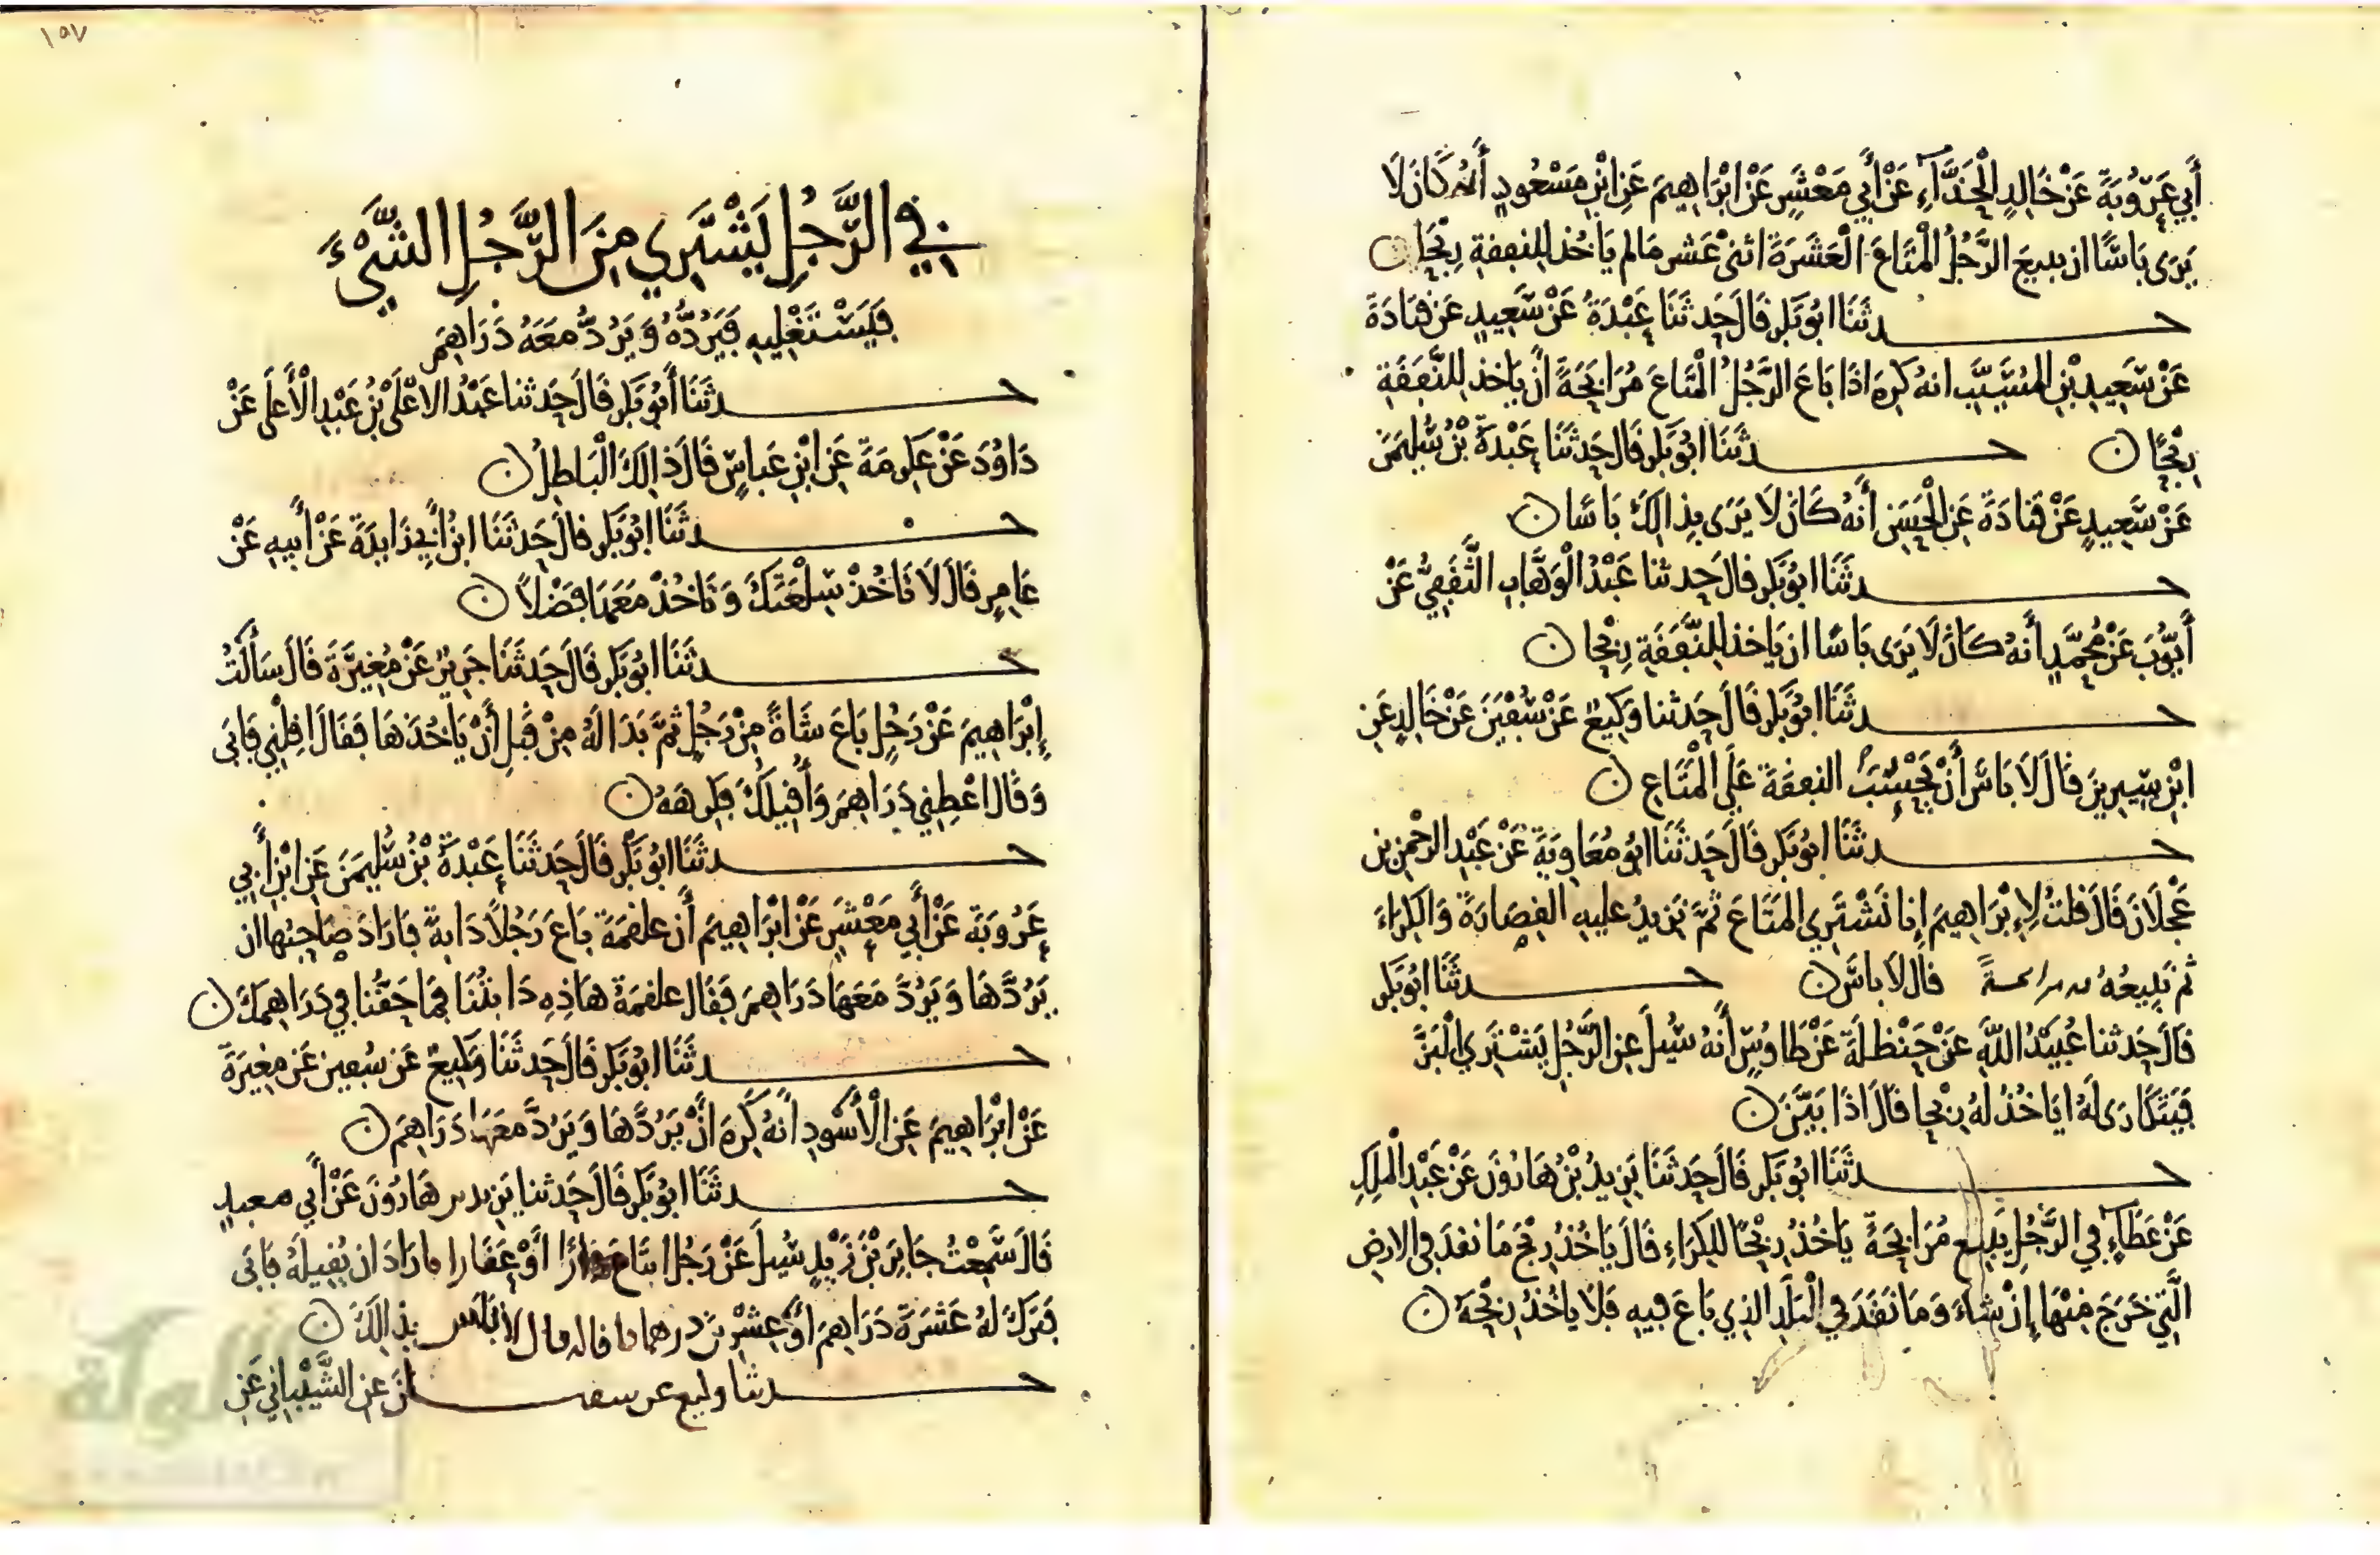 أَبِي عَرُوبَةَ عَنْ خَالِدٍ الْحَذَّاءِ عَنْ أَبِي مَعْشَرٍ عَنْ ابْرَاهِيمَ عَنِ ابْنِ مَسْعُودٍ أَنَّهُ كَانَ لَا
يَرَى بَاسًا ان يبيعَ الرَّجُلُ الْمَتَاعَ الْعَشَرَةَ اثنى عَشر مَا لم يَاخُذ للنفقة رِبْحًا
حدثَنَا ابُو بَكرٍ قَالَ حَدثَنَا عَبْدَةُ عَنْ سَعِيدٍ عَن قتَادَةَ
عَنْ سَعِيدِ بْنِ المُسَيَّبِ انه كَرِهَ اذَا بَاعَ الرَّجُلُ الْمَتَاعَ مُرَابَحَةً انْ يَاخذ لِلنَّفَقَةِ
رِبْحًا حدثَنَا ابُو بَكرٍ قَالَ حَدثَنَا عَبْدَةُ بْنُ سُلَيْمَنَ
عَنْ سَعِيدٍ عَنْ قتَادَةَ عَنِ الْحَسَنِ أَنَّهُ كَانَ لَا يَرَى بِذَالِكَ بَاسًا
حدثَنَا ابُو بَكرٍ قَالَ حَدثنا عَبْدُ الْوَهَّابِ الثَّقَفِيُّ عَنْ
أَيُّوبَ عَنْ مُحَمَّدٍ أَنهُ كَانَ لَا يَرَى بَاسًا ان يَاخذ لِلنَّفَقَةِ رِبْحا
حدثَنَا ابُو بَكرٍ قَالَ حَدثنا وَكِيعٌ عَنْ سُفْيَنَ عَنْ خَالِدٍ عَنِ
ابْنِ سِيرِينَ قَالَ لَا بَاسَ أَنْ يَحْسِبَ النفقَةَ عَلَى الْمَتَاعِ
حدثَنَا ابُو بَكرٍ قَالَ حَدثَنَا ابُو مُعَاوِيَةَ عَنْ عَبْدِ الرَّحْمَنِ بن
عَجْلَانَ قَالَ قلتُ لِإِبْرَاهِيمَ إِنا نَشْتَرِي المَتَاعَ ثمَّ نَزِيدُ عليه القِصَارَةَ وَالْكِرَاءَ
ثم نَبِيعُهُ مرابحةً قال لَا بَاسَ حدثَنَا ابُو بَكرٍ
قَالَ حَدثنا عُبَيْدُ اللهِ عَنْ حَنْظَلَةَ عَنْ طَاوسٍ أَنهُ سُئِلَ عَنِ الرَّجُلِ يَشْتَرِي الْبَزَّ
فَيَتَكَارَى لَهُ ايَاخُذُ لهُ رِبْحا قَالَ اذَا بَيَّنَ
حدثَنَا ابُو بَكرٍ قَالَ حَدثَنَا يَزِيدُ بْنُ هَارُونَ عَنْ عَبْدِ الْمَلِكِ
عَنْ عَطَاءٍ فِي الرَّجُلِ يَبِيع مُرَابَحَةً يَاخُذُ رِبْحًا لِلكِرَاءِ قَالَ يَاخُذُ رِبْحَ مَا نقدَ في الارضِ
الَّتِي خَرَجَ مِنْهَا إِنْ شَاءَ وَمَا نَقَدَ فِي الْبَلَدِ الذِي بَاعَ فِيهِ فَلَا يَاخُذُ رِبْحَهُ
١٥٧
فِي الرَّجُلِ يَشْتَرِي مِنَ الرَّجُلِ الشَّيْءَ
فَيَسْتَغْلِيهِ فَيَرُدُّهُ وَيَرُدُّ مَعَهُ دَرَاهِمَ
حدثَنَا أَبُو بَكرٍ قَالَ حَدثنا عَبْدُ الاعْلَى بْنُ عَبْدِ الْأَعلَى عَنْ
دَاوُدَ عَنْ عِكرِمَةَ عَنِ ابْنِ عَباسٍ قَالَ ذَالِكَ الْبَاطِلُ
حدثَنَا ابُو بَكرٍ قَالَ حَدثَنَا ابْنُ أَبِي زَايِدَةَ عَنْ أَبِيهِ عَنْ
عَامِرٍ قَالَ لَا تَاخُذْ سِلْعَتَكَ وَتَاخُذْ مَعَهَا فَضْلًا
حدثَنَا ابُو بَكرٍ قَالَ حَدثَنَا جَرِيرٌ عَنْ مُغِيرَةَ قَالَ سَأَلْتُ
إِبْرَاهِيمَ عَنْ رَجُلٍ بَاعَ شَاةً مِنْ رَجُلٍ ثمَّ بَدَا لَهُ مِنْ قَبْلِ أَنْ يَاخُذَهَا فَقَالَ اقِلْنِي فَابَى
وَقَالَ اعْطِنِي دَرَاهِمَ وَأُقِيلُكَ فكرِهَهُ
حدثَنَا ابُو بَكْرٍ قَالَ حَدثَنَا عَبْدَةُ بْنُ سُلَيْمَنَ عَنِ ابْنِ أَبِي
عَرُوبَةَ عَنْ أَبِي مَعْشَرٍ عَنْ ابْرَاهِيمَ أَن علقمَةَ بَاعَ رَجُلًا دَابةً فَارَادَ صَاحِبُها ان
يَرُدَّهَا وَيَرُدَّ مَعَهَا دَرَاهِمَ فَقَال علقمَةُ هَاذِهِ دَابتُنَا فَمَا حَقُّنا فِي دَرَاهِمِكَ
حدثَنَا ابُو بَكرٍ قَالَ حَدثَنَا وَكِيعٌ عَن سُفين عَن مغِيرَةَ
عَنْ ابْرَاهِيمَ عَنِ الْأَسْوَدِ أَنهُ كَرِهَ انْ يَرُدَّهَا وَيَرُدَّ مَعَهَا دَرَاهِمَ
حدثَنَا ابُو بَكرٍ قَالَ حَدثنا يَزِيد بن هَارُونَ عَنْ أَبِي
قَالَ سَمِعْتُ جَابِرَ بْنَ زَيْدٍ سُئِلَ عَنْ رَجُلٍ ابتَاعَ أَوْ عَقَارا فارَادَ ان يُقِيلَهُ فَابَى
فَتَرَكَ لَهُ عَشَرَةَ دَرَاهِمَ اوْ عِشْرِينَ درهما فاقاله قال لا باس بِذَالِكَ
حدثنا وكيع عن سفيان عَنِ الشَّيْبَانِيِّ عَنِ